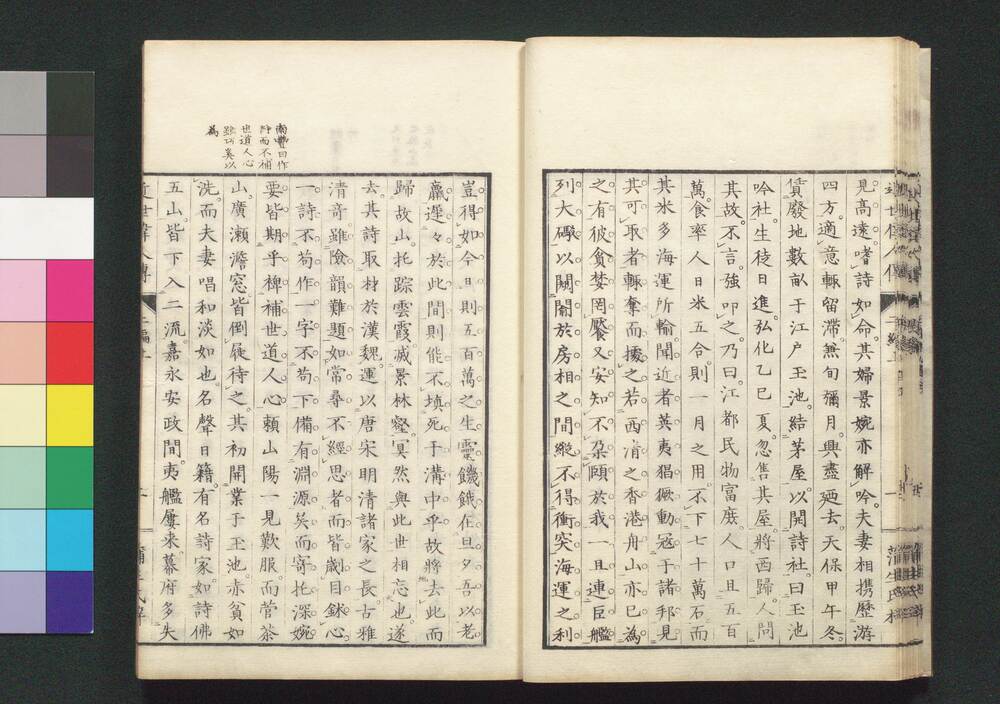 見高遠嗜詩如命其婦景婉亦解吟夫妻相携歷游
四方適意輙留滯無旬彌月興盡廼去天保甲午冬
賃廢地數畝于江戶玉池結茅屋以開詩社曰玉池
吟社生徒日進弘化乙巳夏忽售其屋將西歸人問
其故不言強叩之乃曰江都民物富庶人口且五百
萬食率人日米五合則一月之用不下七十萬石而
其米多海運所輸聞近者英夷猖獗動冦于諸邦見
其可取者輙奪而據之若西淯之香港舟山亦已為
之有彼貪婪罔饜又安知不朶頤於我一旦連巨艦
列大礮以闌闍於房相之間縱不得衝突海運之利
南豐曰作
詩而不補
也道人心
雖巧奚以
為
豈得如今日則五百萬之生靈饑餓在旦夕吾以老
羸遲々於此間則能不塡死于溝中乎故將去此而
歸故山托踪雲霞滅景林壑冥然與此世相忘也遂
去其詩取材於漢魏運以唐宋明清諸家之長古雅
清奇雖險韻難題如常尋不經思者而皆劌目鉥心
一詩不苟作一字不苟下備有淵源矣而寄托深婉
要皆期乎裨補世道人心賴山陽一見歎服而菅茶
山廣瀨澹窓皆倒屣待之其初開業于玉池赤貧如
洗而夫妻唱和淡如也名聲日籍有名詩家如詩佛
五山皆下入二流嘉永安政間夷艦屢来幕府多失
近世偉人傳